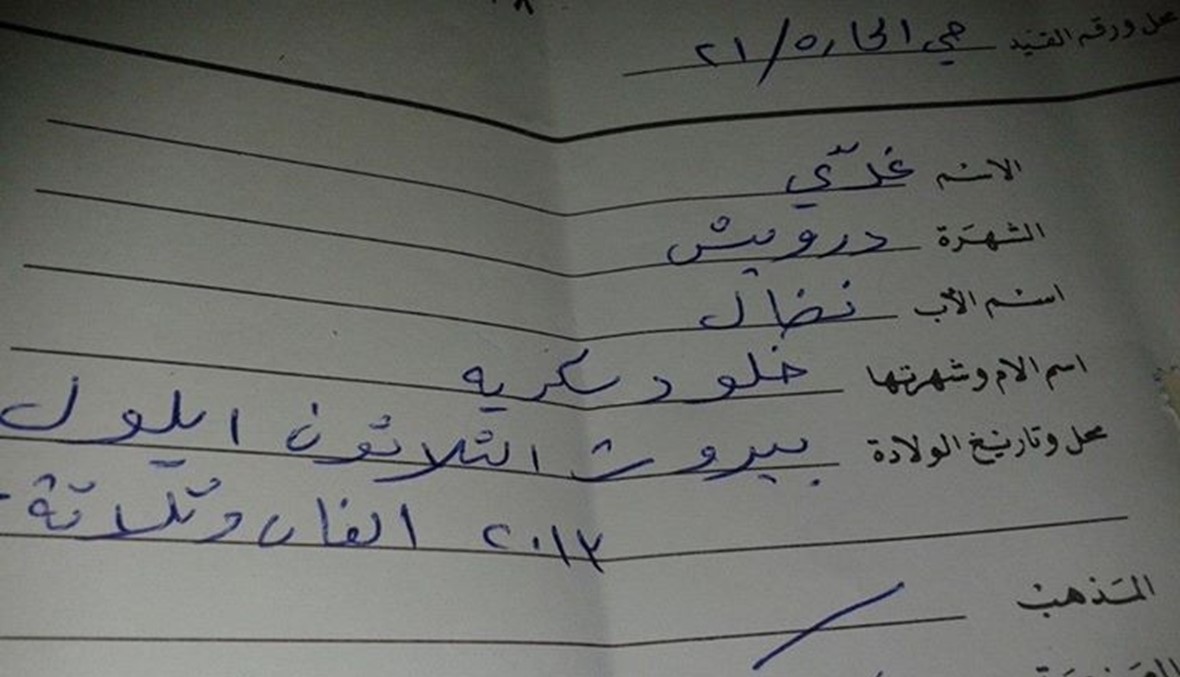 محل ورقم القيد حي الحاره/٢١
الاسم غدّي
الشهرة درويش
اسم الأب نضال
اسم الام وشهرتها خلود سكريه
محل وتاريخ الولادة بيروت الثلاثون ايلول
٢٠١٣ الفان وثلاثة
المذهب /